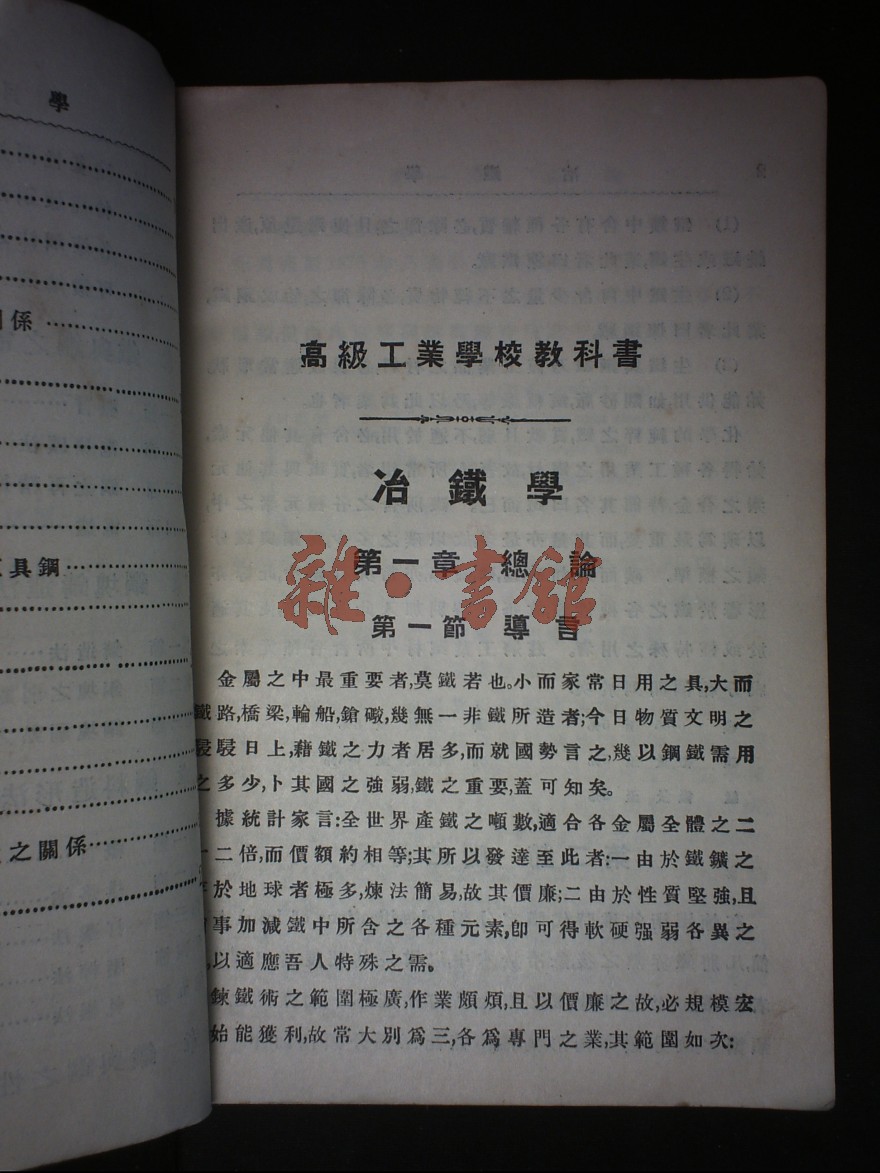 學
係
具鋼
之關係
高級工業學校教科書
冶鐵學
第一章 總論
第一節 導言
雜·書館
金屬之中最重要者,莫鐵若也。小而家常日用之具,大而
鐵路,橋梁,輪船,鎗礮,幾無一非鐵所造者;今日物質文明之
駸駸日上,藉鐵之力者居多,而就國勢言之,幾以鋼鐵需用
之多少,卜其國之強弱,鐵之重要,蓋可知矣。
據統計家言:全世界產鐵之噸數,適合各金屬全體之二
二倍,而價額約相等;其所以發達至此者:一由於鐵鑛之
於地球者極多,煉法簡易,故其價廉;二由於性質堅強,且
事加減鐵中所含之各種元素,卽可得軟硬强弱各異之
,以適應吾人特殊之需。
鍊鐵術之範圍極廣,作業頗煩,且以價廉之故,必規模宏
始能獲利,故常大別爲三,各爲專門之業,其範圍如次: